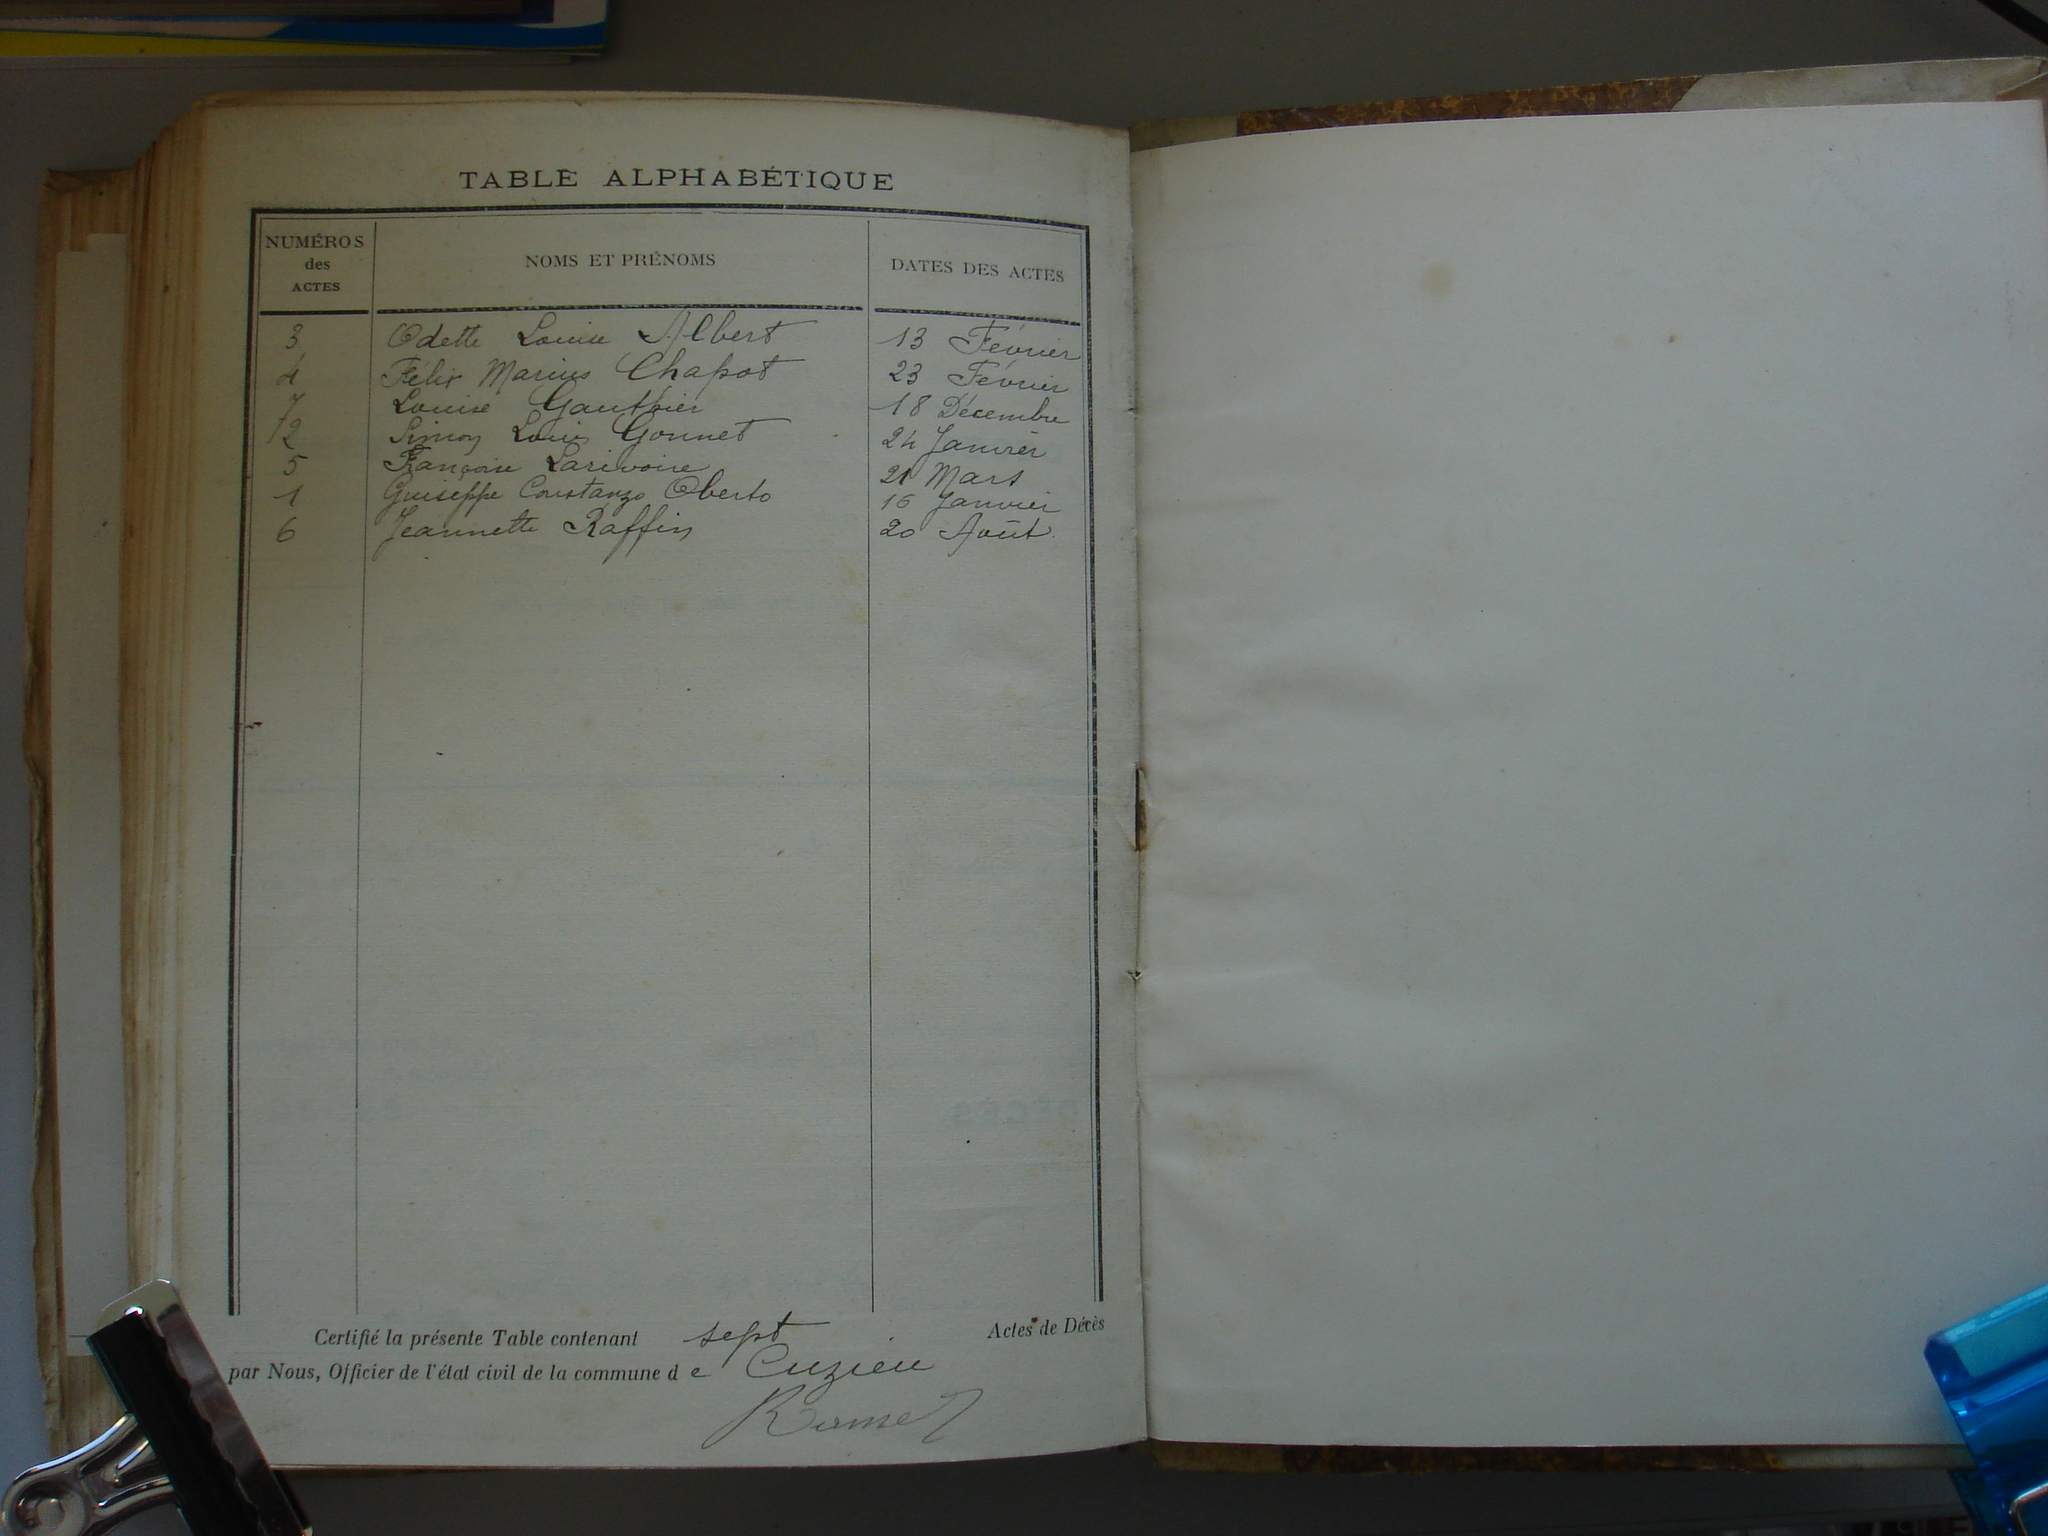 TABLE ALPHABÉTIQUE
NUMÉROS des ACTES NOMS ET PRÉNOMS DATES DES ACTES
3 Odette Louise Albert 13 Février
4 Félix Marius Chapot 23 Février
7 Louise Gauthier 18 Décembre
2 Simon Louis Gonnet 24 Janvier
5 Françoise Larivoire 21 Mars
1 Guiseppe Constanzo Oberto 16 Janvier
6 Jeannette Raffin 20 Août.
Certifié la présente Table contenant sept Actes de Décès
par Nous, Officier de l'état civil de la commune de Cuzieu